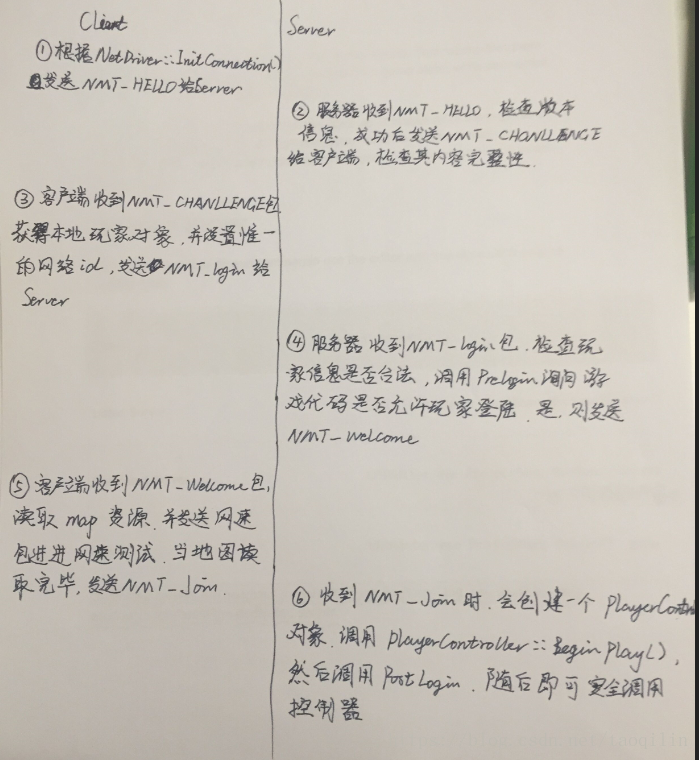 Client
① 根据NetDriver::InitConnection()
发送 NMT_HELLO给Server
Server
② 服务器收到NMT_HELLO, 检查版本
信息, 成功后发送NMT_CHANLLENGE
给客户端, 检查其内容完整性.
③ 客户端收到NMT_CHANLLENGE包
获得本地玩家对象, 并设置惟一
的网络id, 发送 NMT_login 给
Server
④ 服务器收到NMT_login包. 检查玩
家信息是否合法, 调用Prelogin询问游
戏代码是否允许玩家登陆. 是, 则发送
NMT_Welcome
⑤ 客户端收到NMT_Welcome包,
读取map资源. 并发送网速
包进进网速测试. 当地图读
取完毕, 发送NMT_Join.
⑥ 收到NMT_Join时. 会创建一个PlayerContr
对象. 调用PlayerController::BeginPlay(),
然后调用PostLogin. 随后即可安全调用
控制器